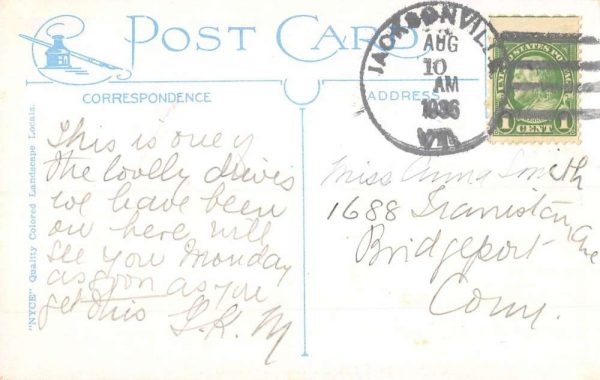 POST CARD
CORRESPONDENCE
ADDRESS
JACKSONVILL
AUG
10
AM
1936
VT.
UNITED STATES POSTAGE
1 CENT 1
"NYCE" Quality Colored Landscape Locals.
This is one of
the lovely drives
we have been
on here, will
see you Monday
as soon as you
get this
S.K.M
Miss Anna Smith
1688 Iranistan Ave
Bridgeport
Conn.